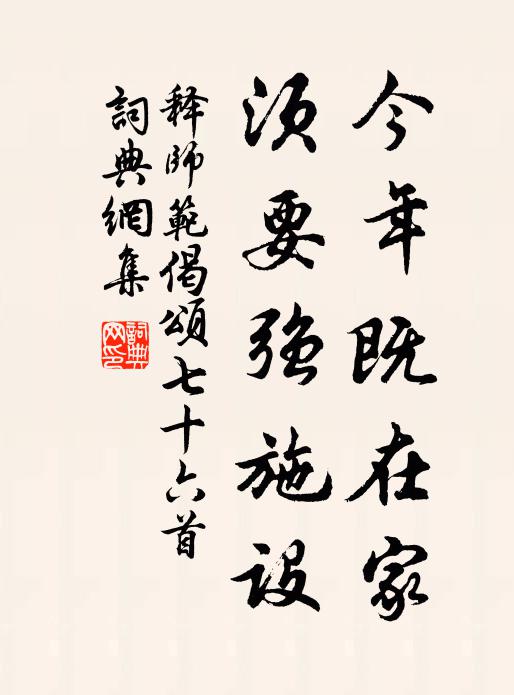 今年既在家
須要強施設
释師範偈頌七十六首
詞典網集
詞典网印